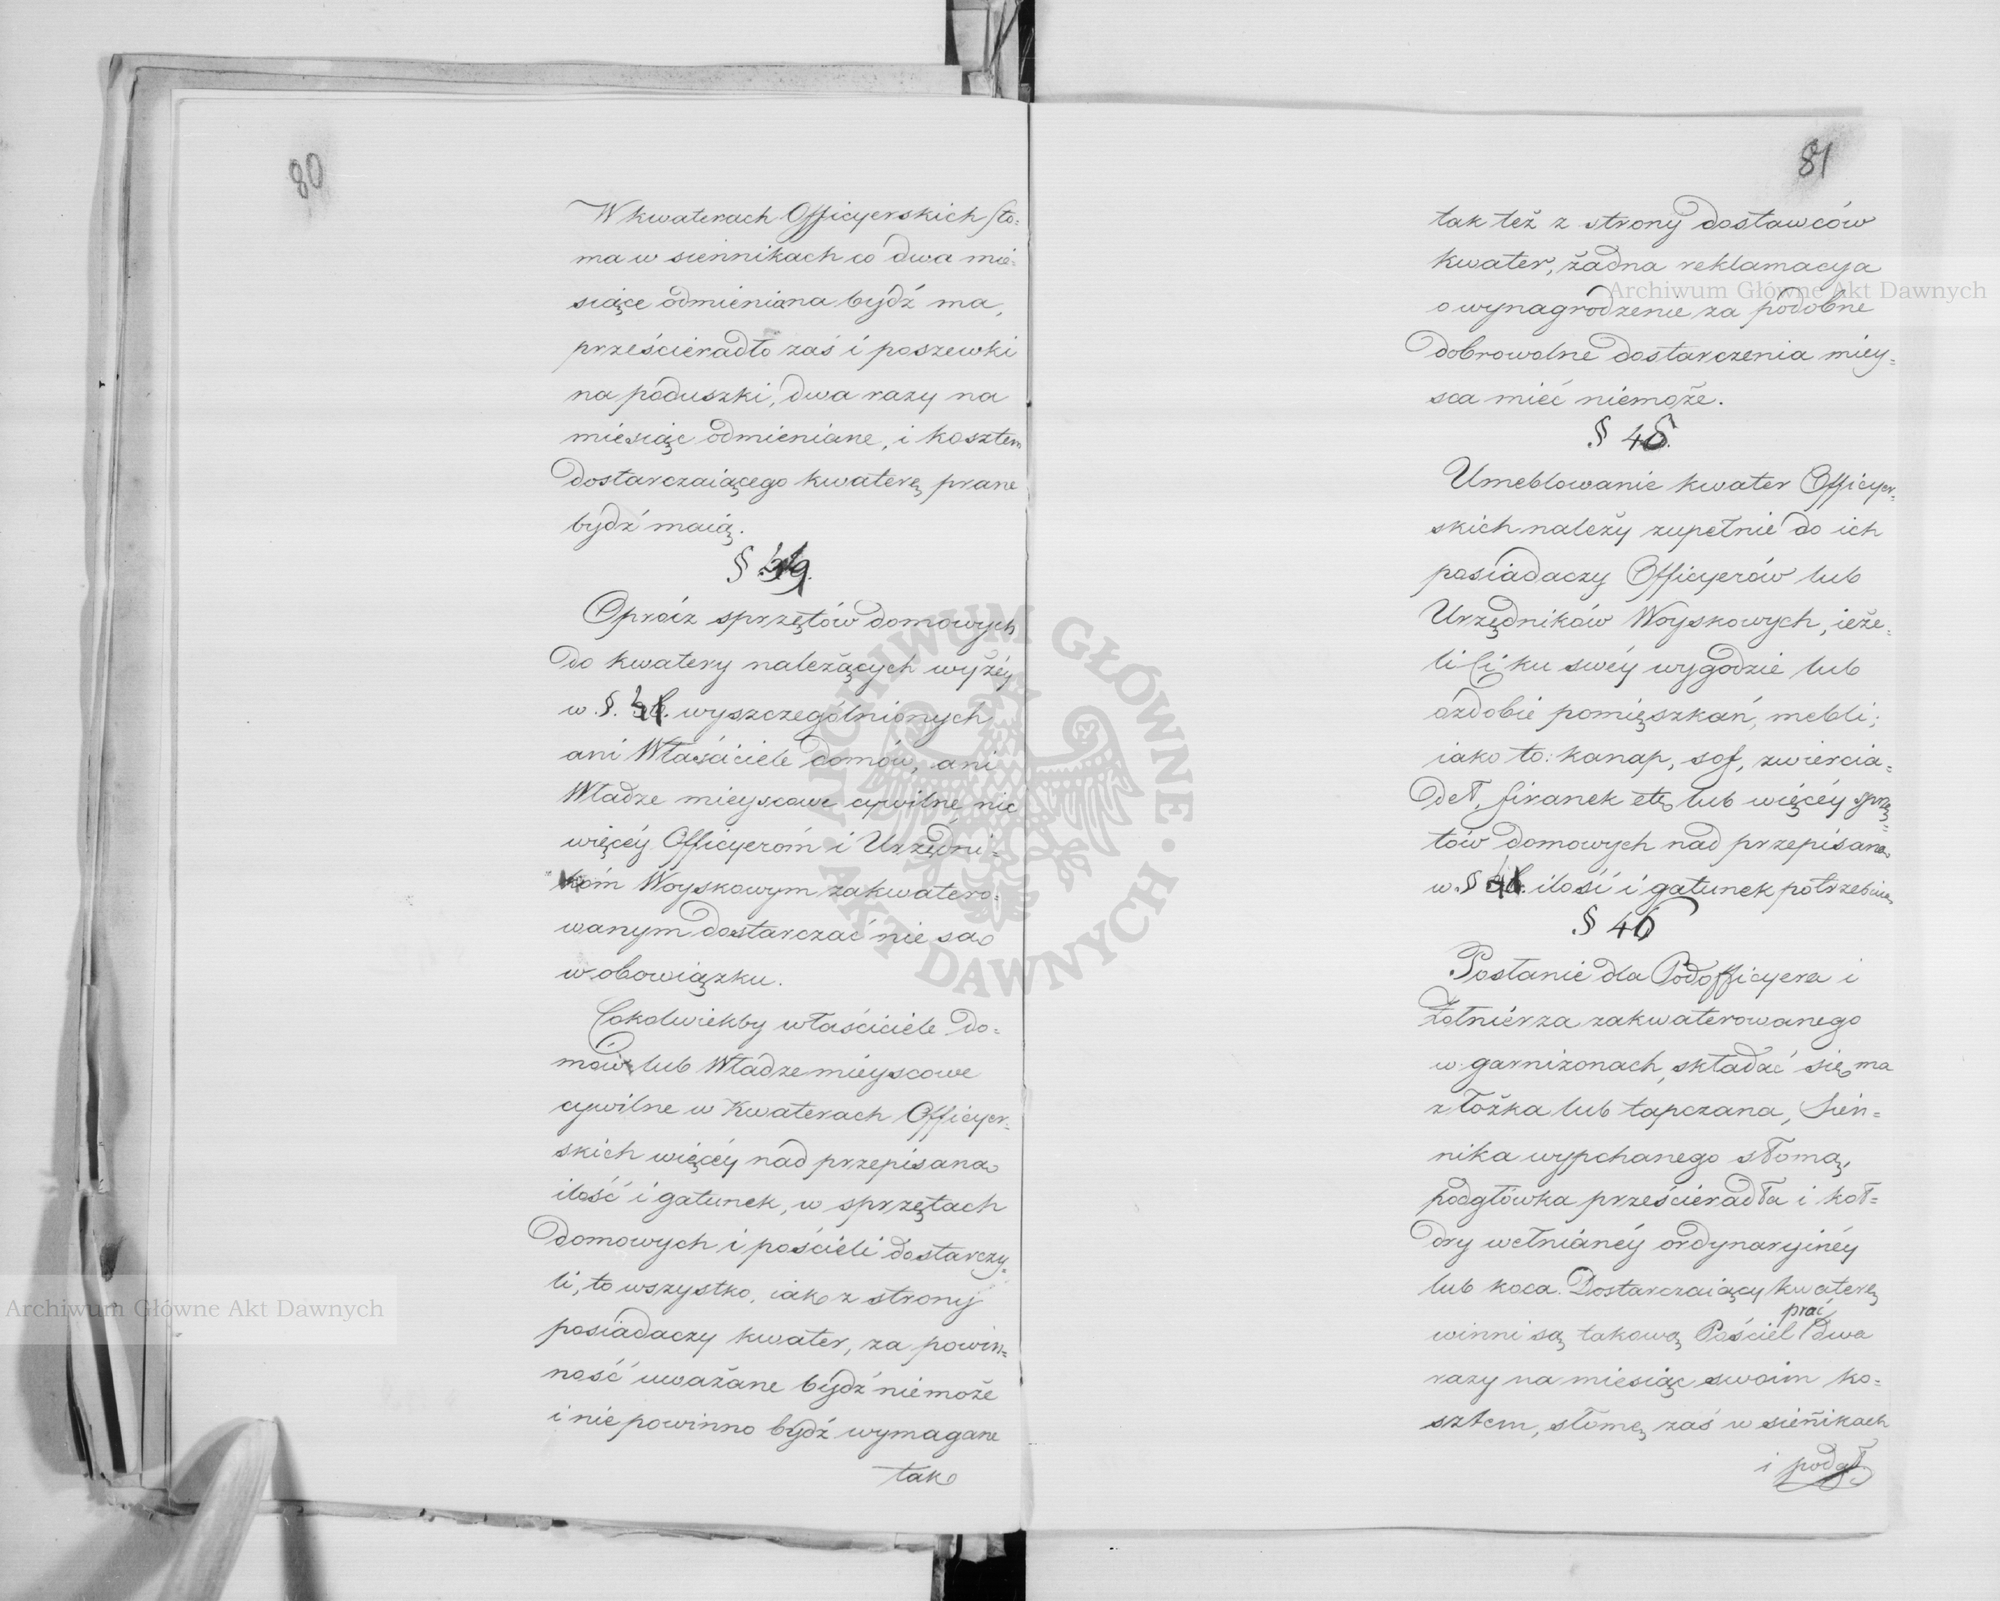 80
W kwaterach Officyerskich sło=
ma w siennikach co dwa mie=
siące odmieniana bydź ma,
prześcieradło zaś i poszewki
na poduszki, dwa razy na
miesiąc odmieniane, i kosztem
dostarczaiącego kwaterę prane
bydź maią.
§
Oprócz sprzętów domowych
do kwatery należących wyżéy
w §. wyszczególnionych
ani Właściciele domów, ani
Władze mieyscowe cywilne nic
więcéy Officyeróm i Urzędni=
kóm Woyskowym zakwatero=
wanym dostarczać nie są
w obowiązku.
Cokolwiekby właściciele do=
mów lub Władze mieyscowe
cywilne w Kwaterach Officyer=
skich więcéy nad przepisaną
ilość i gatunek, w sprzętach
domowych i pościeli dostarczy=
li, to wszystko, iak z strony
posiadaczy kwater, za powin=
ność uważane bydź niemoże
i nie powinno bydź wymagane
tak
81
tak też z strony dostawców
kwater, żadna reklamacya
o wynagrodzenie za podobne
dobrowolne dostarczenia miey=
sca mieć niemoże.
§ 45.
Umeblowanie kwater Officyer=
skich należy zupełnie do ich
posiadaczy Officyerów lub
Urzędników Woyskowych, ieże=
li Ci ku swéy wygodzie lub
ozdobie pomięszkań, mebli;
iako to: kanap, sof, zwiercia=
deł, firanek etc lub więcéy sprzę=
tów domowych nad przepisaną
w § ilość i gatunek potrzebuią
§ 46
Posłanie dla Podofficyera i
Żołnierza zakwaterowanego
w garnizonach, składać się ma
z łóżka lub tapczana, Sien=
nika wypchanego słomą,
podgłówka prześcieradła i koł=
dry wełnianéy ordynaryinéy
lub koca. Dostarczaiący kwaterę
prać
winni są takową Pościel dwa
razy na miesiąc swoim ko=
sztem, słomę zaś w sieńikach
i podgł
Archiwum Główne Akt Dawnych
Archiwum Główne Akt Dawnych
ARCHIWUM GŁÓWNE AKT DAWNYCH